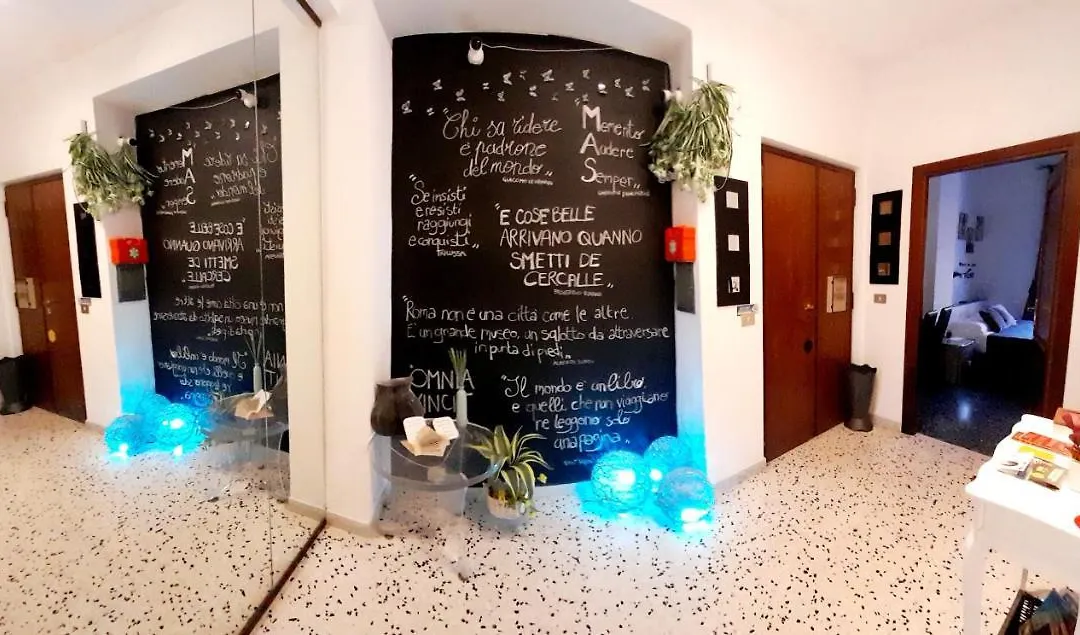 "Chi sa ridere
è padrone
del mondo"
GIACOMO LEOPARDI
"Memento
Audere
Semper"
"Se insisti
e resisti
raggiungi
e conquisti"
TRILUSSA
"E COSE BELLE
ARRIVANO QUANNO
SMETTI DE
CERCALLE"
Roma non è una città come le altre.
È un grande museo, un salotto da attraversare
in punta di piedi"
ALBERTO SORDI
"OMNIA
VINCI
"Il mondo è un libro,
e quelli che non viaggiono
ne leggono solo
una pagina"